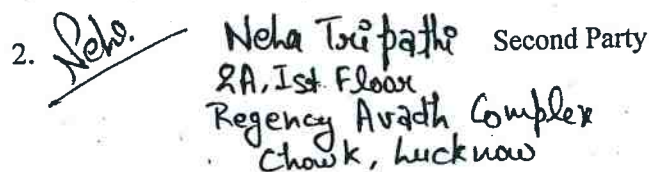 2. Neha. Neha Tripathi Second Party
2A, Ist Floor
Regency Avadh Complex
Chowk, Lucknow